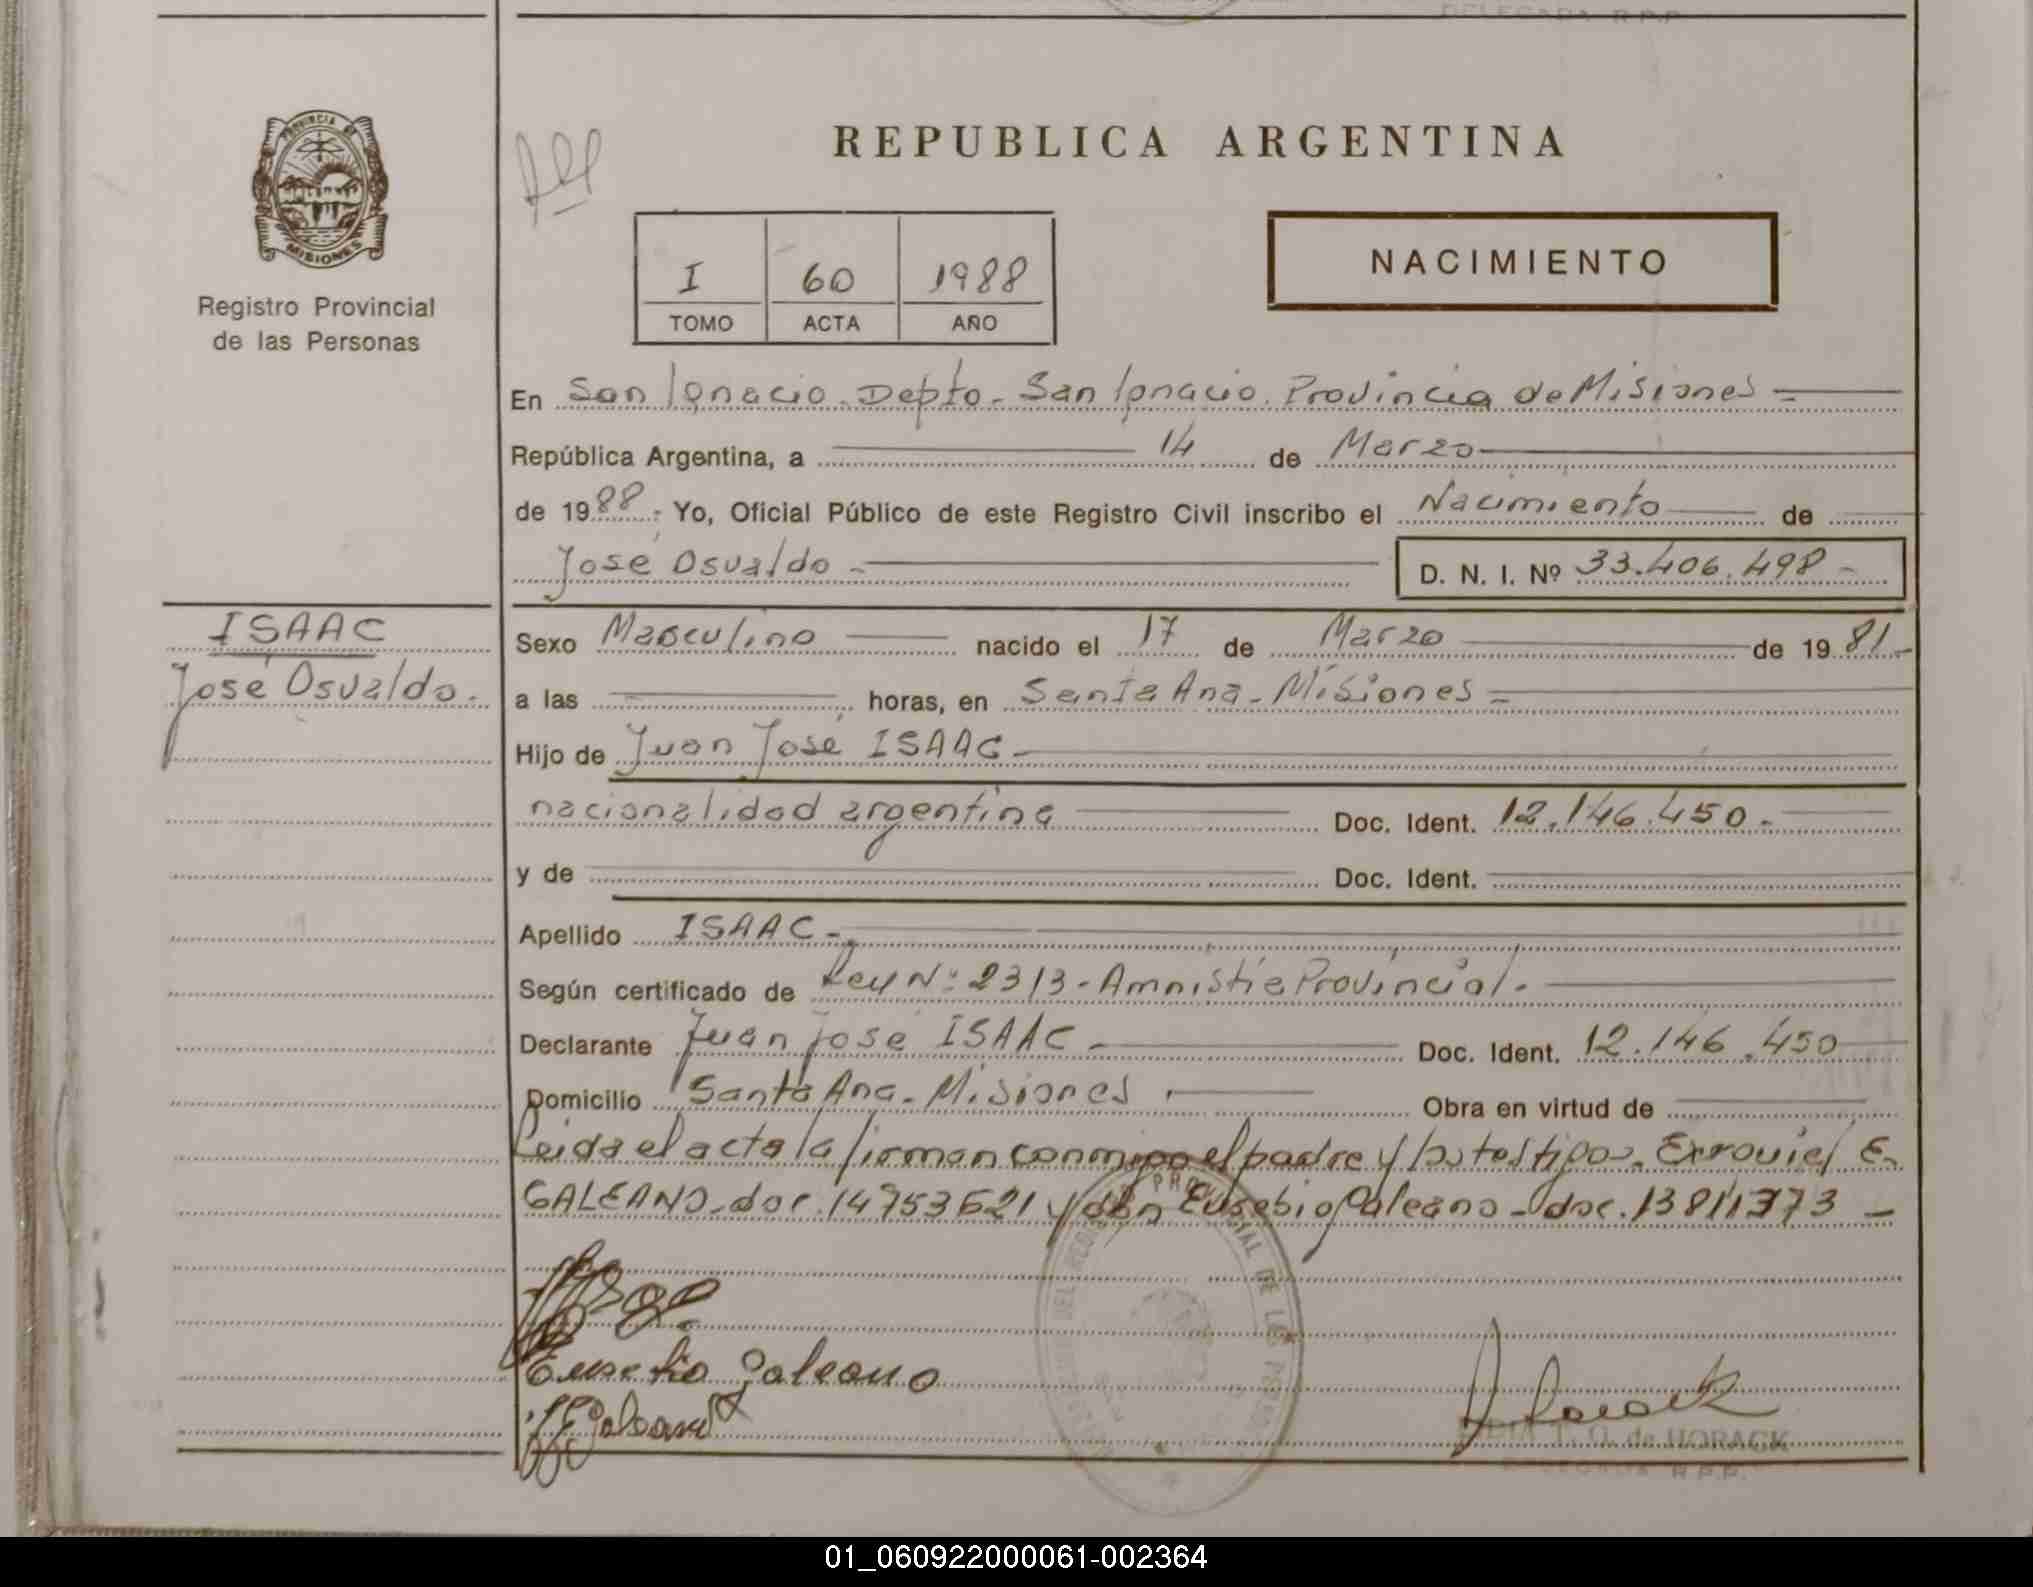 DELEGADA R.P.P.
PROVINCIA DE
MISIONES
Registro Provincial
de las Personas
REPUBLICA ARGENTINA
I 60 1988
TOMO ACTA AÑO
NACIMIENTO
En San Ignacio. Depto. San Ignacio. Provincia de Misiones
República Argentina, a 14 de Marzo
de 1988.- Yo, Oficial Público de este Registro Civil inscribo el Nacimiento de
José Osvaldo - D. N. I. Nº 33.406.498 -
ISAAC
José Osvaldo.
Sexo Masculino nacido el 17 de Marzo de 1981.-
a las horas, en Santa Ana - Misiones =
Hijo de Juan José ISAAC -
nacionalidad argentina Doc. Ident. 12.146.450.-
y de Doc. Ident.
Apellido ISAAC -
Según certificado de Ley Nº 2313 - Amnistia Provincial.
Declarante Juan José ISAAC - Doc. Ident. 12.146.450
Domicilio Santa Ana - Misiones. Obra en virtud de
Leida el acta la firman conmigo el padre y los testigos. E.
GALEANO - doc. 14753621 y don Eusebio Galeano - doc. 13811373 -
Eusebio Galeano
DEL PROVINCIAL DE LAS
T. O. de HORACK
DELEGADA R.P.P.
01_060922000061-002364